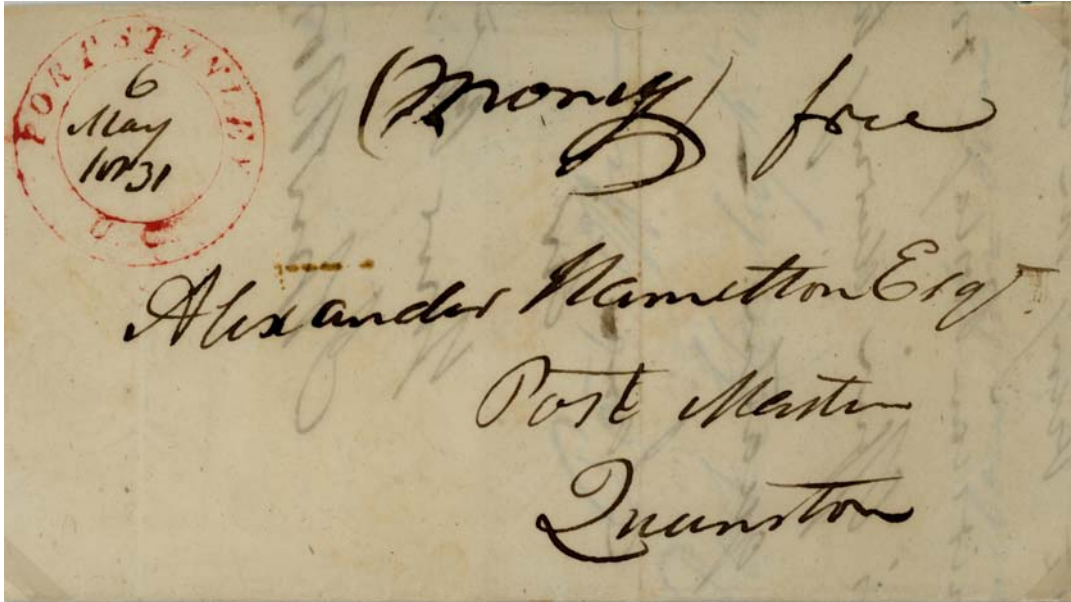 PORT STANLEY
6
May
1831
U.C
(Money) free
Alexander Hamelton Esqr
Post Master
Queenston